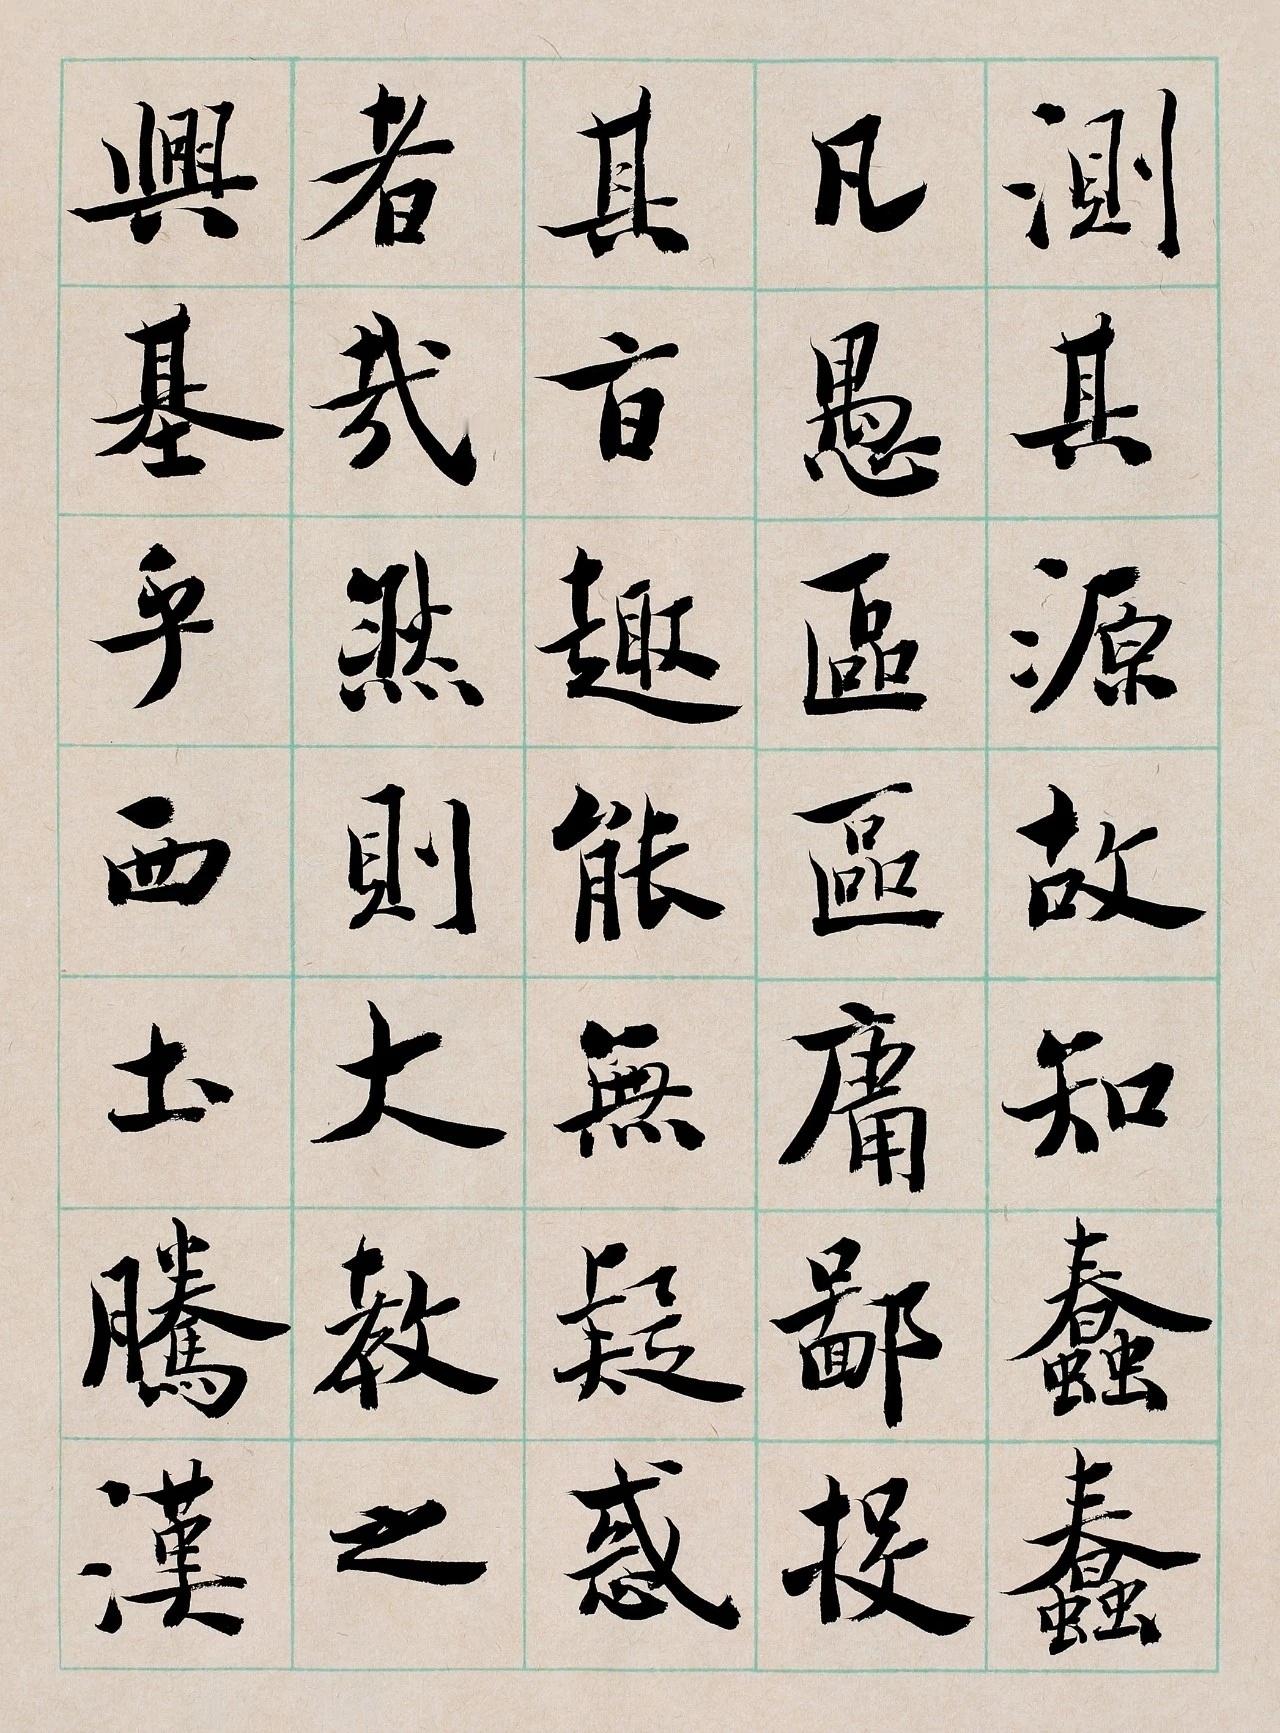 測其源故知蠢蠢
凡愚區區庸鄙投
其旨趣能無疑惑
者哉然則大教之
興基乎西土騰漢